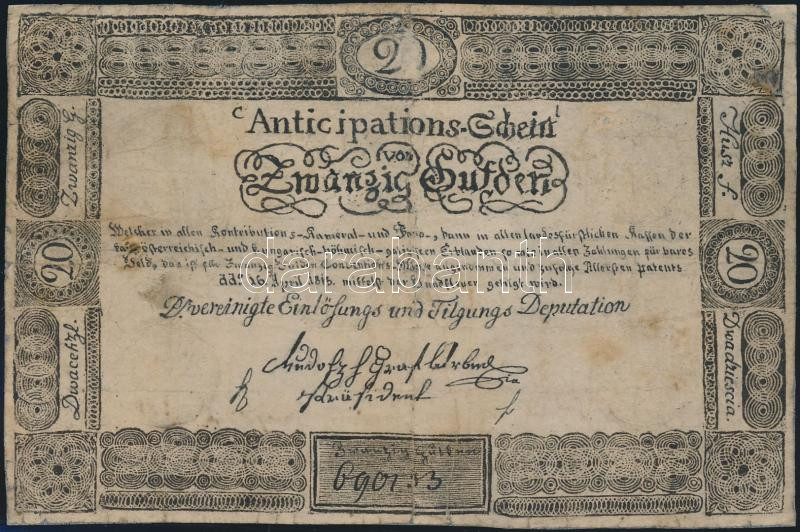 20
Anticipations-Schein
von
Zwanzig Gulden
Zwanzig G.
Husz f.
Welcher in allen Kontributions-Kameral- und Banco-, dann in allen landesfürstlichen Kassen der
österreichisch- und hungarisch-böhmisch- Erblanden so wie in allen Zahlungen für bares
Geld, das ist für Zwanzig Gulden angenommen und zufolge Patents
dd° 16. April 1813. mittelst der Grundsteuer getilgt wird.
20
20
Dᵉ vereinigte Einlösungs und Tilgungs Deputation
Dwacehzl.
Dwadziescia.
Rudolph Graf
Präsident
Zwanzig Gulden
6901.13